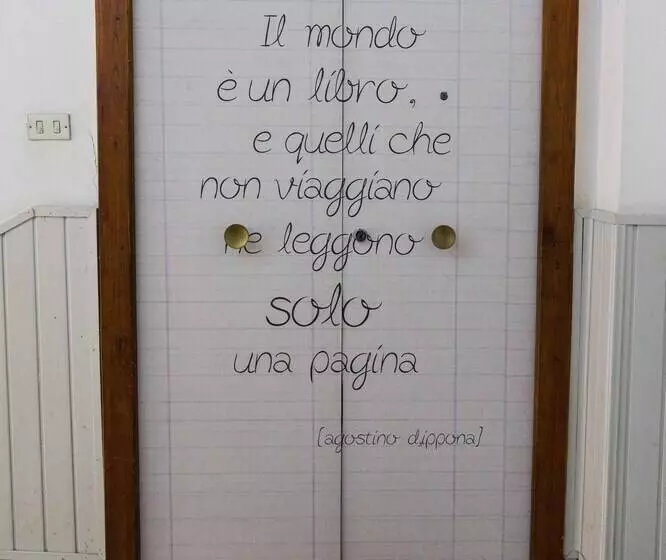 Il mondo
è un libro,
e quelli che
non viaggiano
ne leggono
solo
una pagina
[agostino d'ippona]